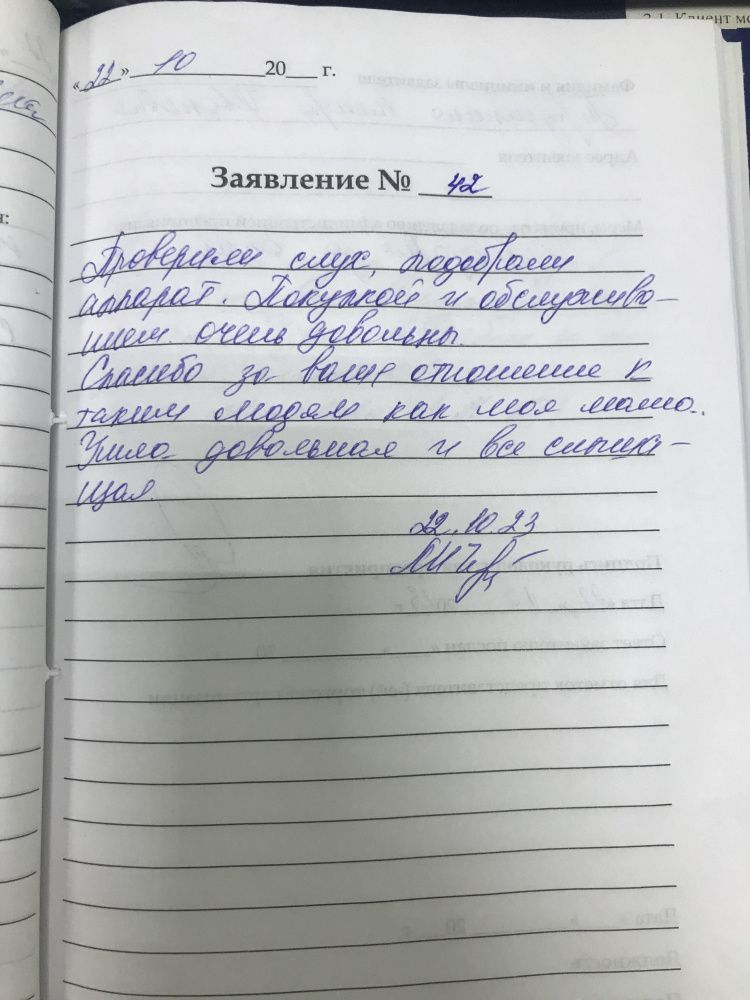 2.1. Клиент мо
«22» 10 20___ г.
Заявление № 42
Проверили слух, подобрали
аппарат. Покупкой и обслужива-
нием очень довольны.
Спасибо за ваше отношение к
таким людям как моя мама.
Ушла довольная и все слыша-
щая.
22.10.23